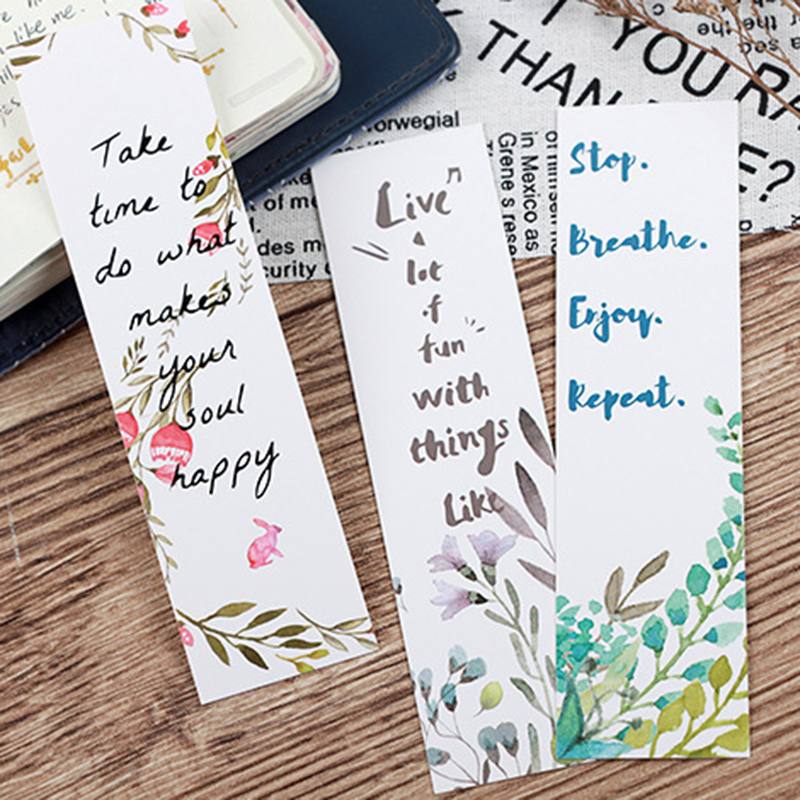 like me.
Take
time to
do what
makes
your
soul
happy
Live
a
lot
of
fun
with
things
like
Stop.
Breathe.
Enjoy.
Repeat.
YOU RA
THAN
E?
orwegial
of me
des m
curity o
in Mexico as
Grene's rese
of himself